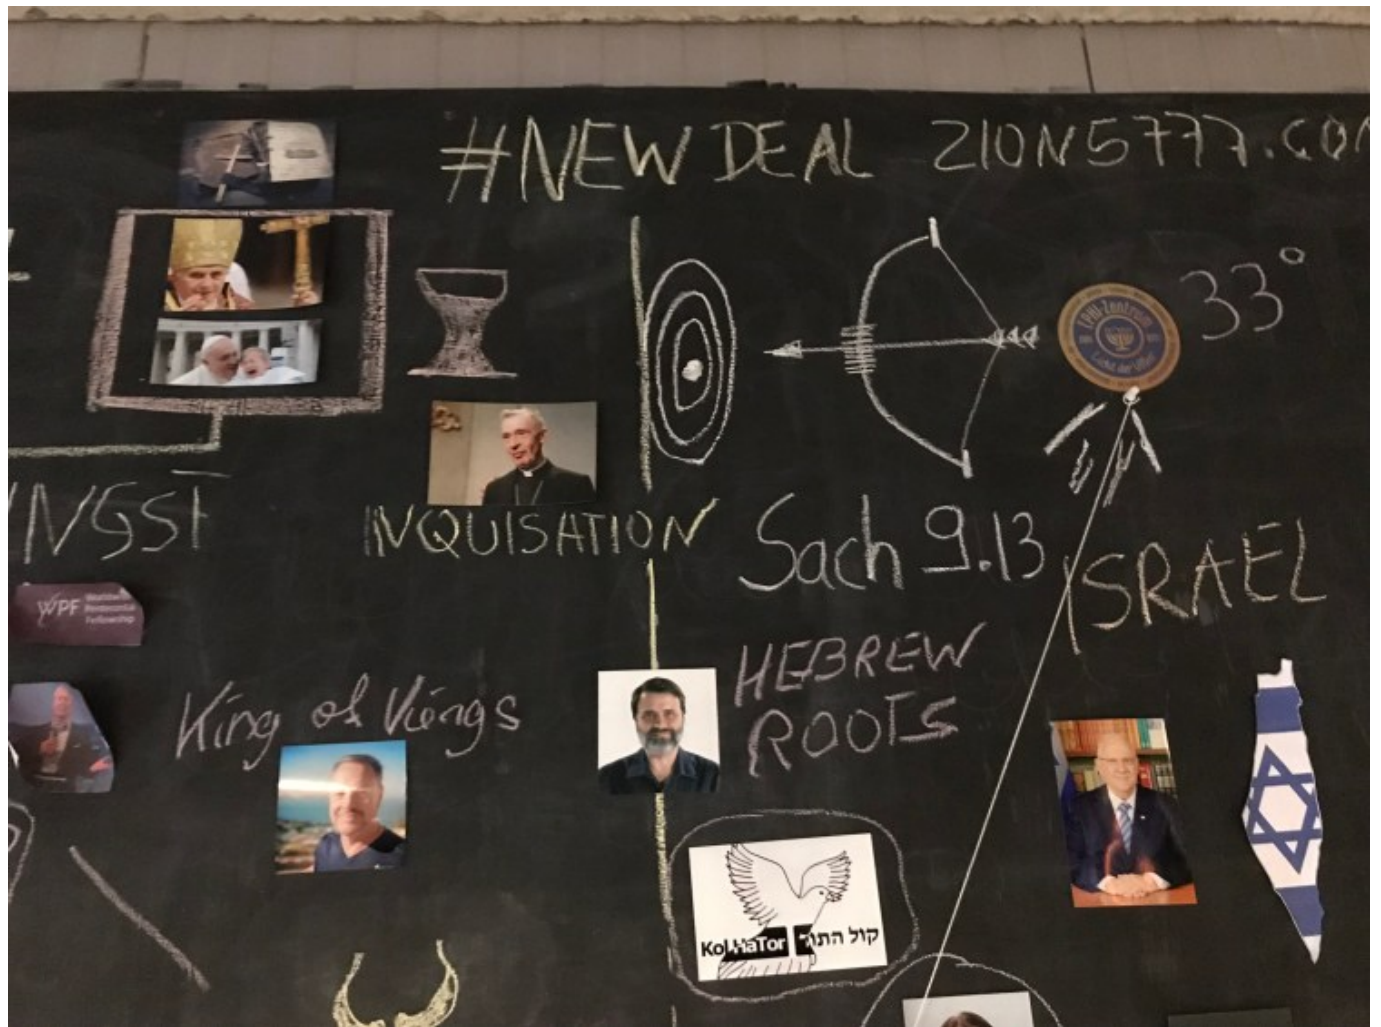 #NEW DEAL ZION5777.CO
33°
NGST
INQUISATION
Sach 9.13
ISRAEL
WPF Worldwide
Pentecostal
Fellowship
King of Kiengs
HEBREW
ROOTS
Kol HaTor קול התור